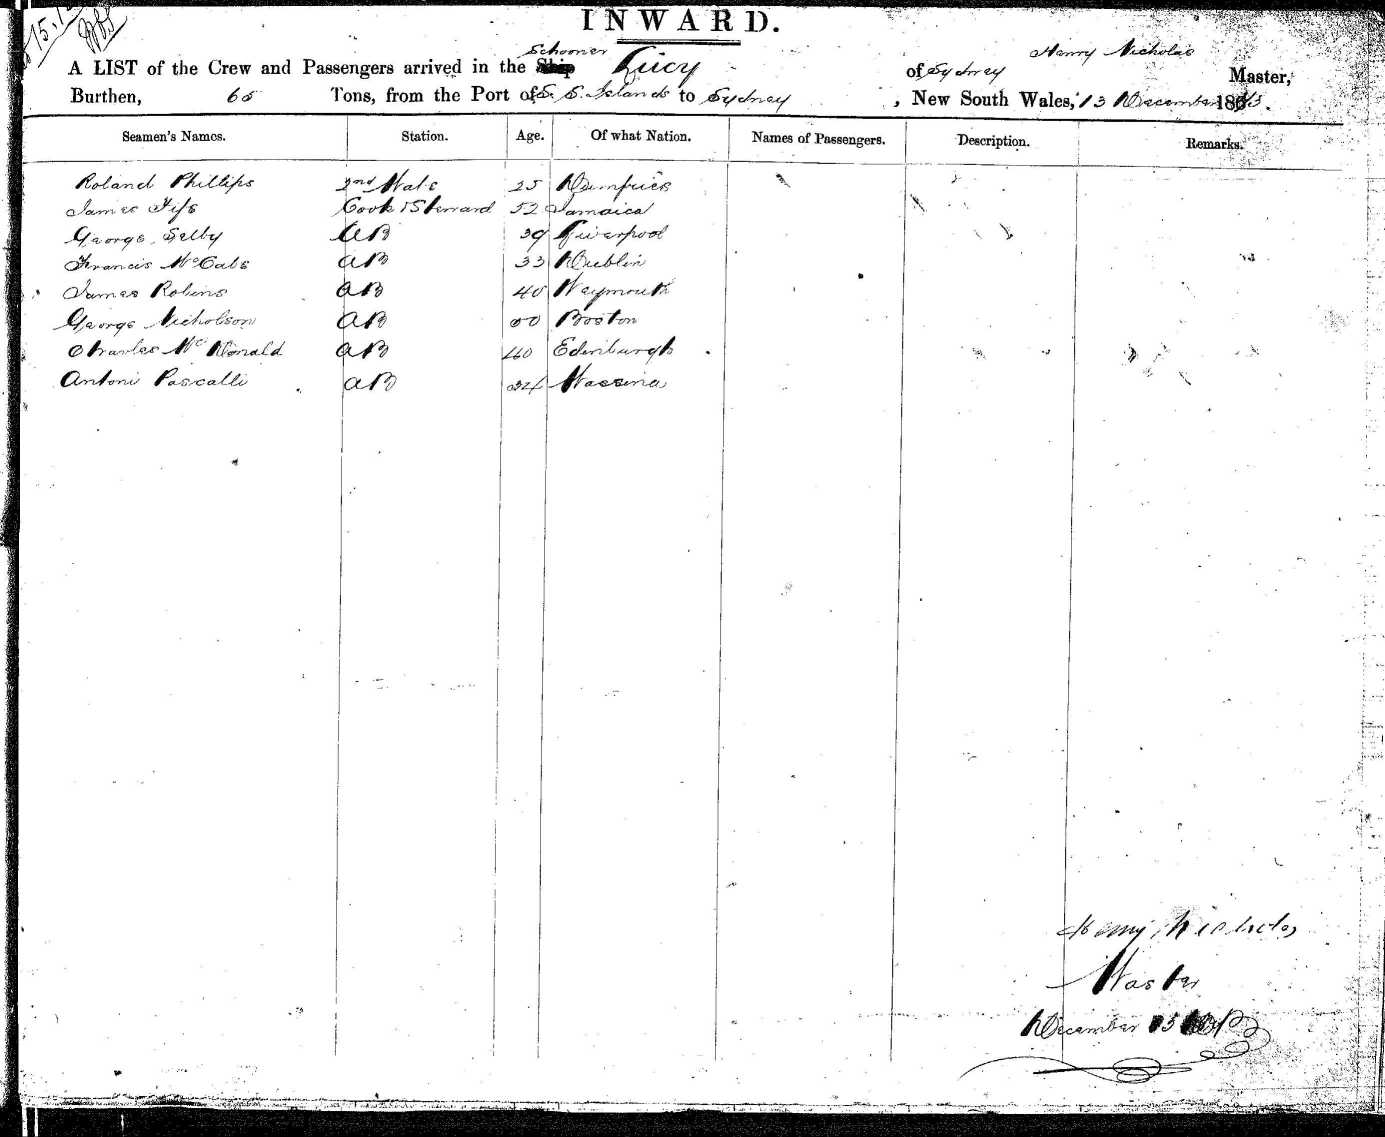 15.12
INWARD.
Schooner Henry Nicholas
A LIST of the Crew and Passengers arrived in the Ship Lucy of Sydney Master,
Burthen, 65 Tons, from the Port of S. S. Islands to Sydney, New South Wales, 13 December 186
Seamen's Names. Station. Age. Of what Nation. Names of Passengers. Description. Remarks.
Roland Phillips 2nd Mate 25 Dumfries
James Fife Cook & Steward 52 Jamaica
George Selby AB 39 Liverpool
Francis McCabe AB 33 Dublin
James Robins AB 40 Weymouth
George Nicholson AB Boston
Charles McDonald AB 40 Edinburgh
Antoni Pascalli AB 34 Messina
Henry Nicholas
Master
December